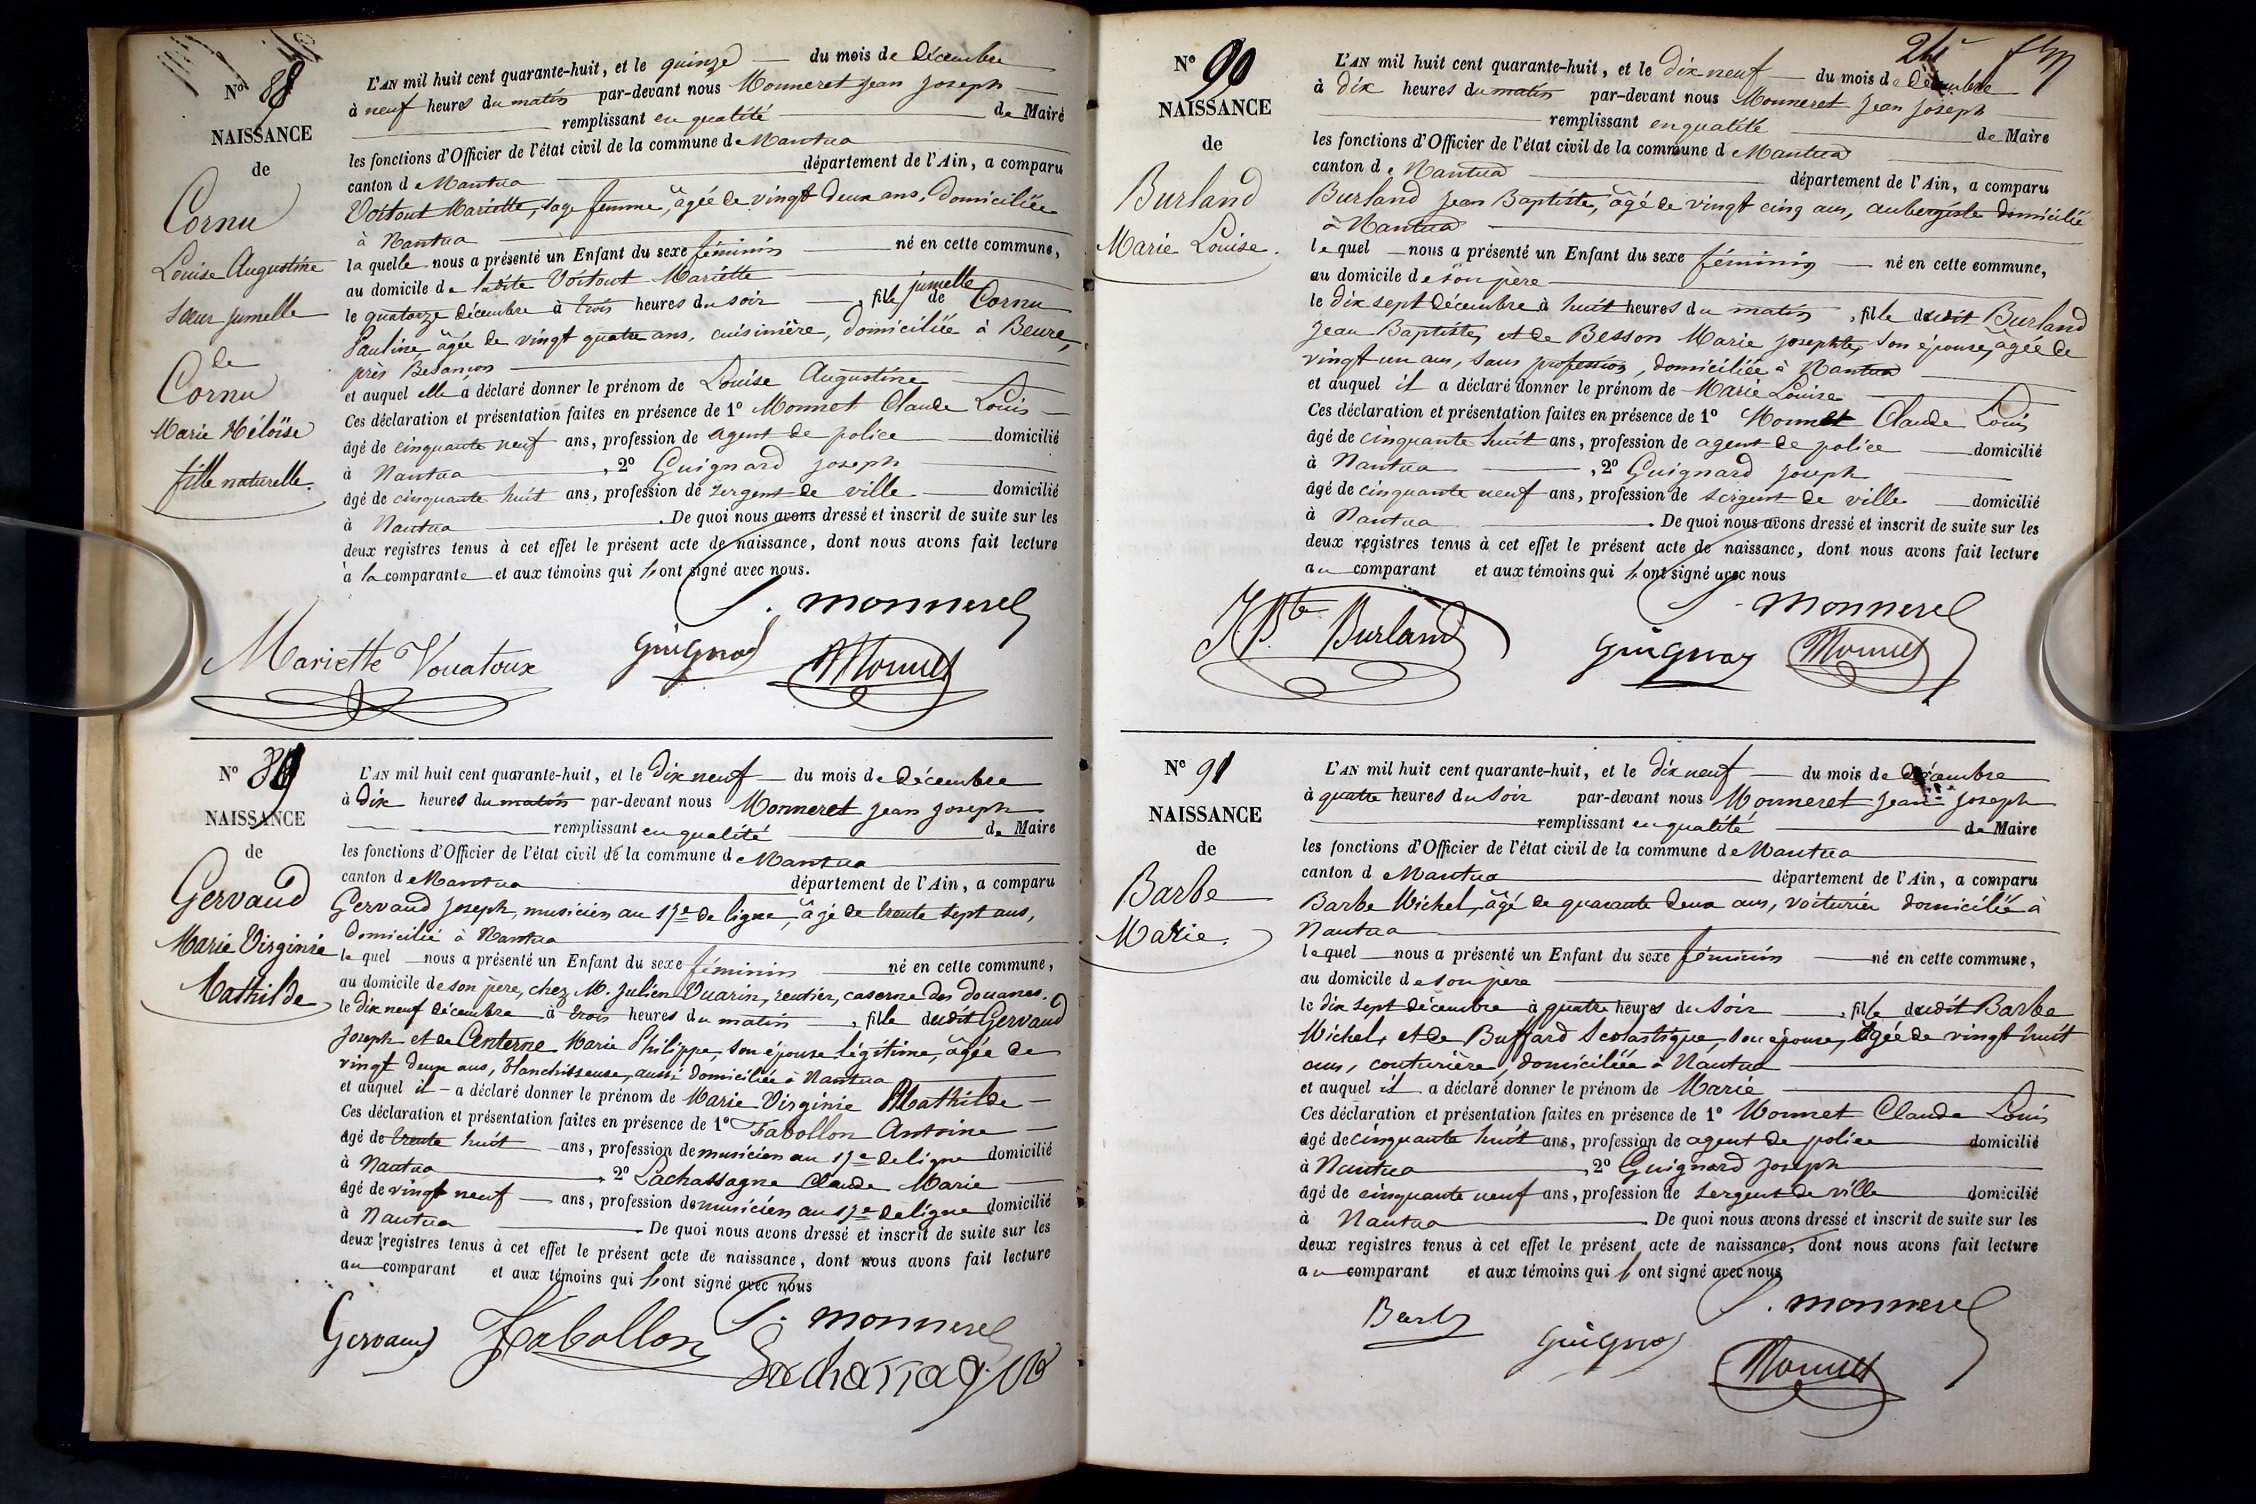 N° 88
NAISSANCE
de
Cornu
Louise Augustine
sœur jumelle
de
Cornu
Marie Héloïse
fille naturelle.
L'AN mil huit cent quarante-huit, et le quinze du mois de Décembre
à neuf heures du matin par-devant nous Monneret Jean Joseph
remplissant en qualité de Maire
les fonctions d'Officier de l'état civil de la commune de Nantua
canton de Nantua département de l'Ain, a comparu
Voitout Mariette, sage femme, âgée de vingt deux ans, domiciliée
à Nantua
laquelle nous a présenté un Enfant du sexe féminin né en cette commune,
au domicile de ladite Voitout Mariette
le quatorze décembre à trois heures du soir, fille jumelle de Cornu
Pauline, âgée de vingt quatre ans, cuisinière, domiciliée à Beure,
près Besançon
et auquel elle a déclaré donner le prénom de Louise Augustine
Ces déclaration et présentation faites en présence de 1° Monnet Claude Louis
âgé de cinquante neuf ans, profession de agent de police domicilié
à Nantua, 2° Guignard Joseph
âgé de cinquante huit ans, profession de sergent de ville domicilié
à Nantua. De quoi nous avons dressé et inscrit de suite sur les
deux registres tenus à cet effet le présent acte de naissance, dont nous avons fait lecture
à la comparante et aux témoins qui ont signé avec nous.
J. Monneret
Mariette Vouatoux Guignard Monnet
N° 89
NAISSANCE
de
Gervaud
Marie Virginie
Mathilde
L'AN mil huit cent quarante-huit, et le dix neuf du mois de décembre
à dix heures du matin par-devant nous Monneret Jean Joseph
remplissant en qualité de Maire
les fonctions d'Officier de l'état civil de la commune de Nantua
canton de Nantua département de l'Ain, a comparu
Gervaud Joseph, musicien au 17e de ligne, âgé de trente sept ans,
domicilié à Nantua
lequel nous a présenté un Enfant du sexe féminin né en cette commune,
au domicile de son père, chez M. Julien Vuarin, rentier, caserne des douanes.
le dix neuf décembre à trois heures du matin, fille dudit Gervaud
Joseph et de Centerne Marie Philippe, son épouse légitime, âgée de
vingt deux ans, blanchisseuse, aussi domiciliée à Nantua
et auquel il a déclaré donner le prénom de Marie Virginie Mathilde
Ces déclaration et présentation faites en présence de 1° Fabollon Antoine
âgé de trente huit ans, profession de musicien au 17e de ligne domicilié
à Nantua, 2° Lachassagne Claude Marie
âgé de vingt neuf ans, profession de musicien au 17e de ligne domicilié
à Nantua. De quoi nous avons dressé et inscrit de suite sur les
deux registres tenus à cet effet le présent acte de naissance, dont nous avons fait lecture
au comparant et aux témoins qui ont signé avec nous
J. Monneret
Gervaud Fabollon Lachassagne
N° 90
NAISSANCE
de
Burland
Marie Louise.
L'AN mil huit cent quarante-huit, et le dix neuf du mois de Décembre
à dix heures du matin par-devant nous Monneret Jean Joseph
remplissant en qualité de Maire
les fonctions d'Officier de l'état civil de la commune de Nantua
canton de Nantua département de l'Ain, a comparu
Burland Jean Baptiste, âgé de vingt cinq ans, aubergiste domicilié
à Nantua
lequel nous a présenté un Enfant du sexe féminin né en cette commune,
au domicile de son père
le dix sept décembre à huit heures du matin, fille dudit Burland
Jean Baptiste, et de Besson Marie Josephte, son épouse, âgée de
vingt un ans, sans profession, domiciliée à Nantua
et auquel il a déclaré donner le prénom de Marie Louise
Ces déclaration et présentation faites en présence de 1° Monnet Claude Louis
âgé de cinquante huit ans, profession de agent de police domicilié
à Nantua, 2° Guignard Joseph
âgé de cinquante neuf ans, profession de sergent de ville domicilié
à Nantua. De quoi nous avons dressé et inscrit de suite sur les
deux registres tenus à cet effet le présent acte de naissance, dont nous avons fait lecture
au comparant et aux témoins qui ont signé avec nous
J. Monneret
J Bte Burland Guignard Monnet
N° 91
NAISSANCE
de
Barbe
Marie.
L'AN mil huit cent quarante-huit, et le dix neuf du mois de décembre
à quatre heures du soir par-devant nous Monneret Jean Joseph
remplissant en qualité de Maire
les fonctions d'Officier de l'état civil de la commune de Nantua
canton de Nantua département de l'Ain, a comparu
Barbe Michel, âgé de quarante deux ans, voiturier domicilié à
Nantua
lequel nous a présenté un Enfant du sexe féminin né en cette commune,
au domicile de son père
le dix sept décembre à quatre heures du soir, fille dudit Barbe
Michel, et de Buffard Scolastique, son épouse, âgée de vingt huit
ans, couturière, domiciliée à Nantua
et auquel il a déclaré donner le prénom de Marie
Ces déclaration et présentation faites en présence de 1° Monnet Claude Louis
âgé de cinquante huit ans, profession de agent de police domicilié
à Nantua, 2° Guignard Joseph
âgé de cinquante neuf ans, profession de sergent de ville domicilié
à Nantua. De quoi nous avons dressé et inscrit de suite sur les
deux registres tenus à cet effet le présent acte de naissance, dont nous avons fait lecture
au comparant et aux témoins qui ont signé avec nous
J. Monneret
Barbe Guignard Monnet